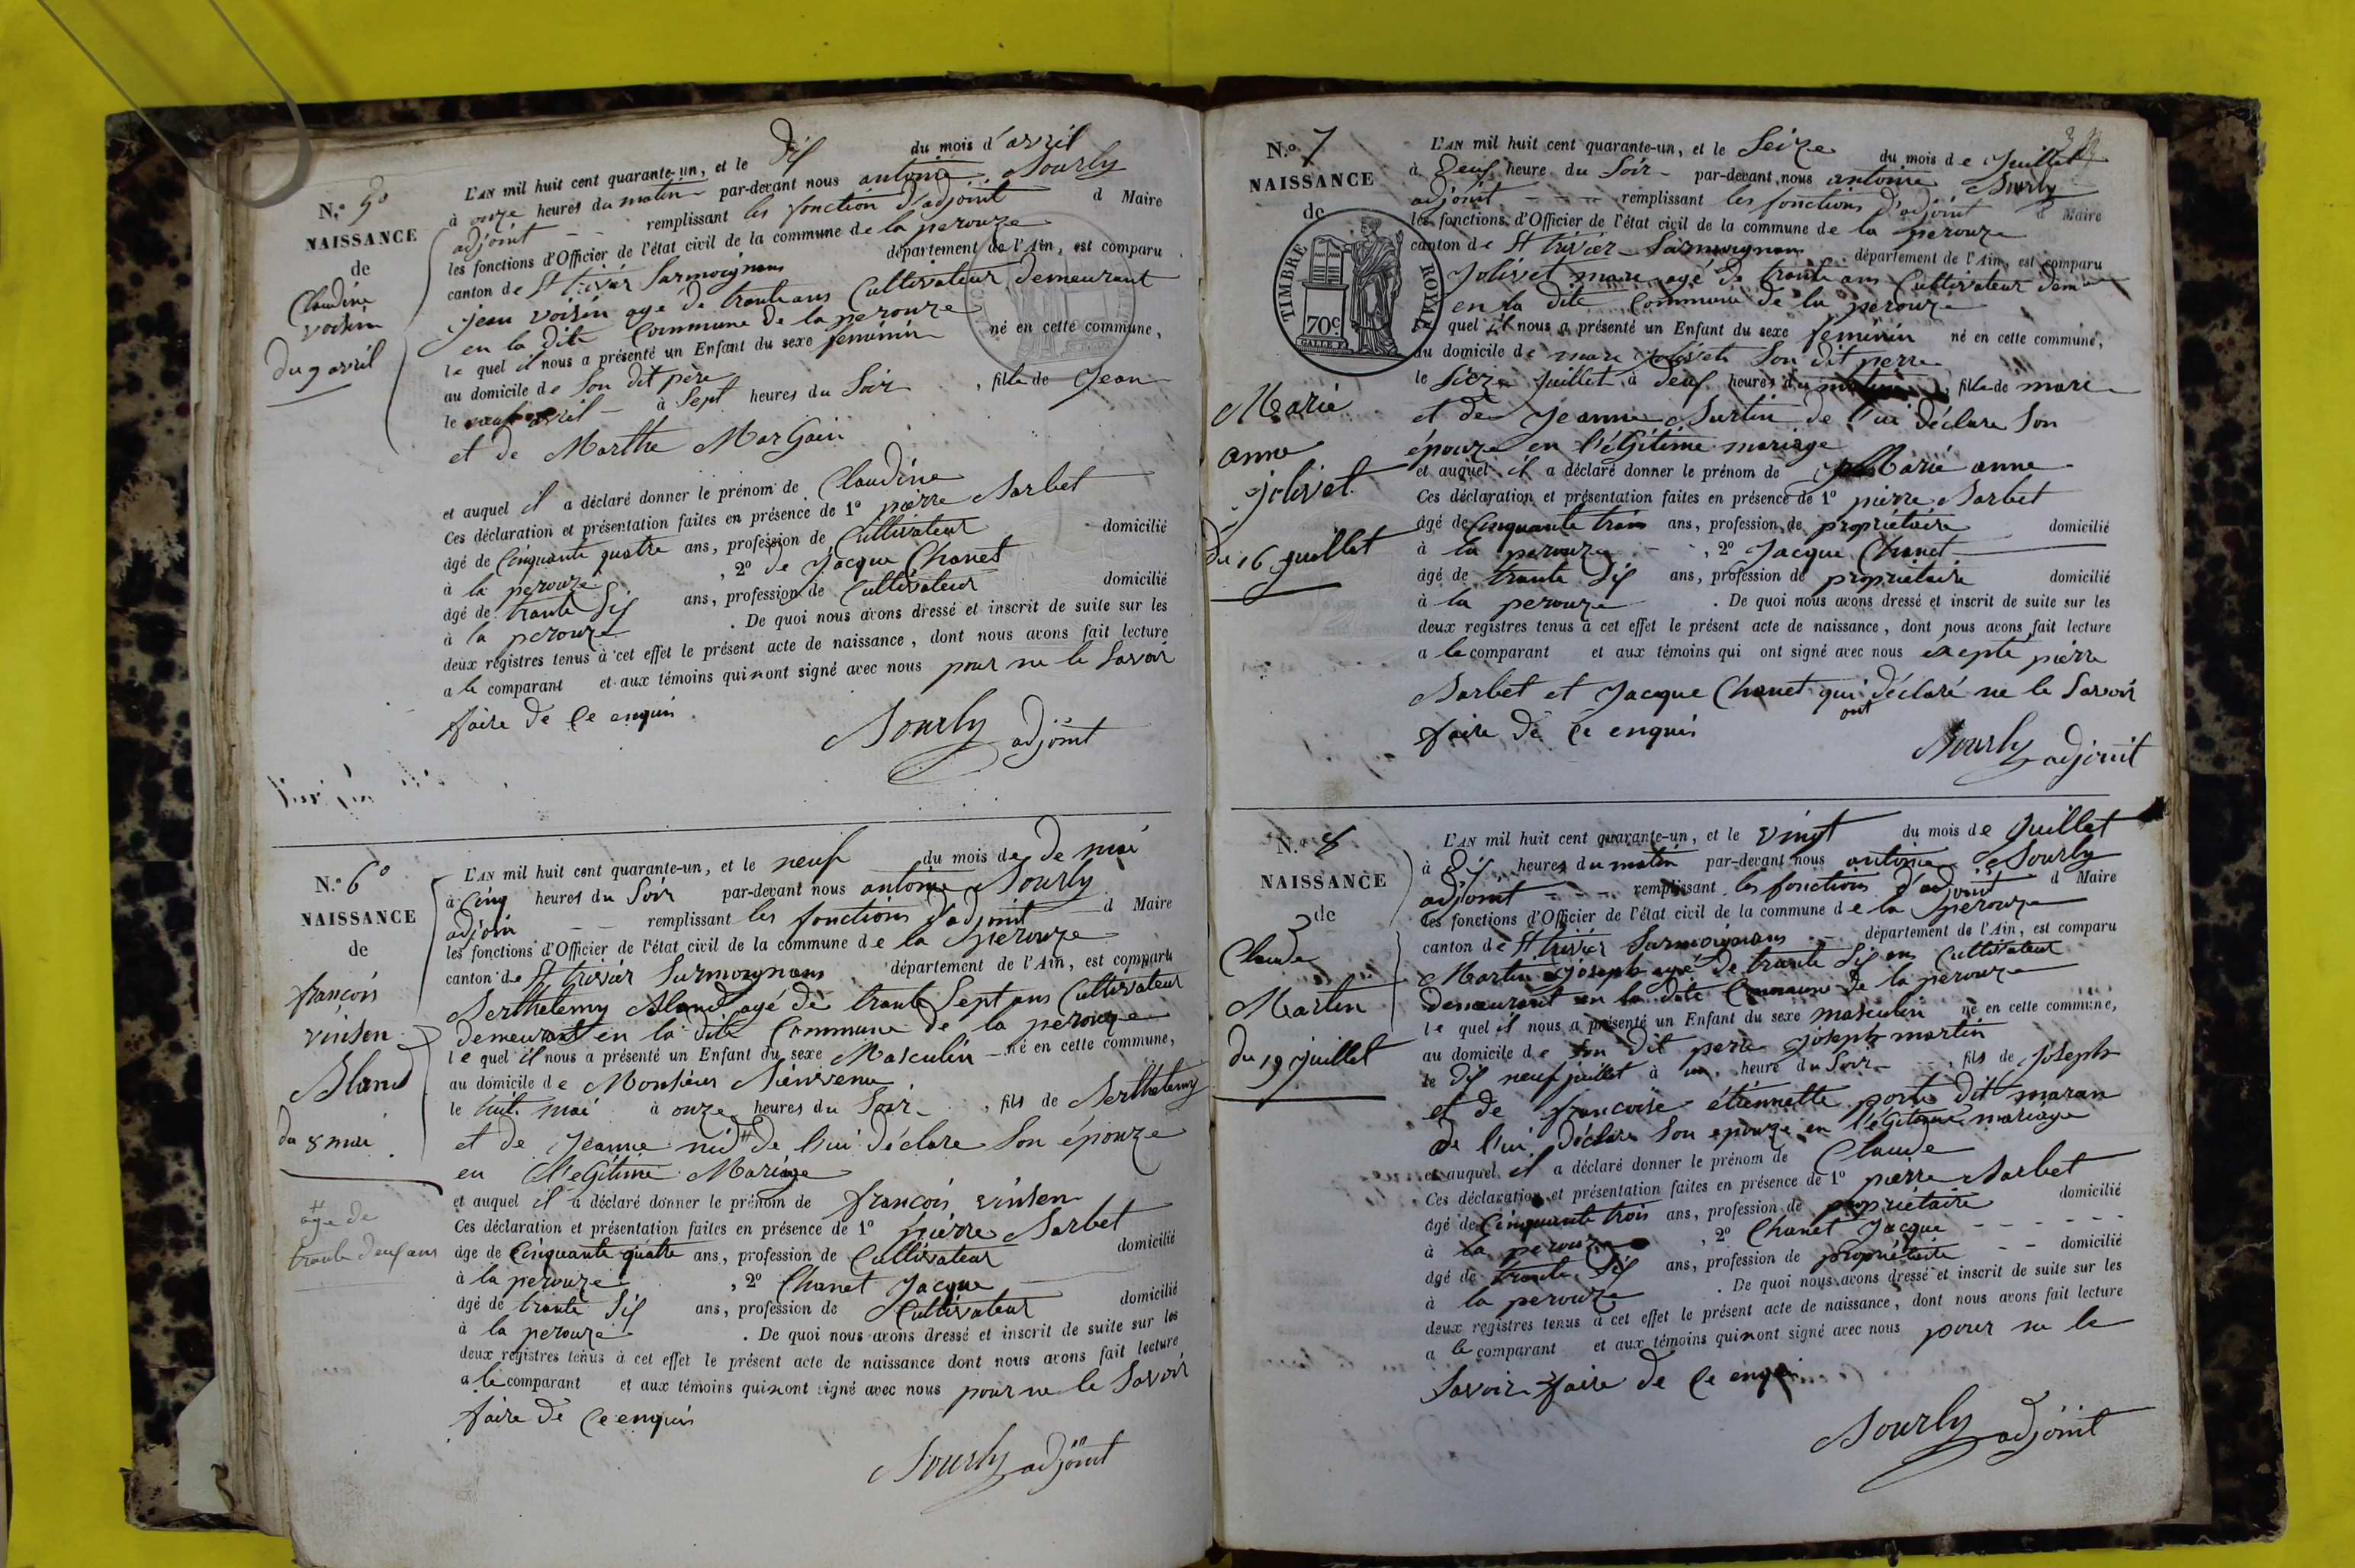 N.º 5º
NAISSANCE
de
Claudine
voisin
du 9 avril
L'AN mil huit cent quarante-un, et le dix du mois d'avril
à onze heures du matin par-devant nous antoine Sourly
adjoint remplissant les fonction d'adjoint d Maire
les fonctions d'Officier de l'état civil de la commune de la perouze
canton de St trivier Surmoignans département de l'Ain, est comparu
Jean voisin agé de trante ans Cultivateur demeurant
en la dite Commune de la perouze
le quel il nous a présenté un Enfant du sexe feminin né en cette commune,
au domicile de Son dit père
le neuf avril à Sept heures du Soir, fille de Jean
et de Marthe Margain
et auquel il a déclaré donner le prénom de Claudine
Ces déclaration et présentation faites en présence de 1º pierre Sarbet
âgé de Cinquante quatre ans, profession de Cultivateur domicilié
à la perouze, 2º de Jacque Chanet
âgé de trante Six ans, profession de Cultivateur domicilié
à la perouze. De quoi nous avons dressé et inscrit de suite sur les
deux registres tenus à cet effet le présent acte de naissance, dont nous avons fait lecture
a le comparant et aux témoins qui nont signé avec nous pour ne le Savoir
faire de Ce enquis
Sourly adjoint
N.º 6º
NAISSANCE
de
françois
vinsen
Bland
du 8 mai
age de
trante deux ans
L'AN mil huit cent quarante-un, et le neuf du mois de de mai
à Cinq heures du Soir par-devant nous antoine Sourly
adjoin remplissant les fonctions d'adjoint d Maire
les fonctions d'Officier de l'état civil de la commune de la perouze
canton de St trivier Surmoignans département de l'Ain, est comparu
Berthelemy Bland agé de trante Sept ans Cultivateur
demeurant en la dite Commune de la perouze
le quel il nous a présenté un Enfant du sexe Masculin né en cette commune,
au domicile de Monsieur Bienvenu
le huit mai à onze heures du Soir, fils de Berthelemy
et de Jeanne nid de l'ui déclare Son épouze
en l'égitime Mariage
et auquel il a déclaré donner le prénom de françois vinsen
Ces déclaration et présentation faites en présence de 1º pierre Sarbet
âgé de Cinquante quatre ans, profession de Cultivateur domicilié
à la perouze, 2º Chanet Jacque
âgé de trante Six ans, profession de Cultivateur domicilié
à la perouze. De quoi nous avons dressé et inscrit de suite sur les
deux registres tenus à cet effet le présent acte de naissance dont nous avons fait lecture
a le comparant et aux témoins qui nont signé avec nous pour ne le Savoir
faire de Ce enquis
Sourly adjoint
N.º 7
NAISSANCE
de
TIMBRE ROYAL
70c
Marie
anne
jolivet
du 16 juillet
L'AN mil huit cent quarante-un, et le Seize du mois de Juillet
à deux heure du Soir par-devant nous antoine Sourly
adjoint remplissant les fonctions d'adjoint d Maire
les fonctions d'Officier de l'état civil de la commune de la perouze
canton de St trivier Surmoignans département de l'Ain, est comparu
Jolivet marc agé de trante ans Cultivateur dem
en la dite Commune de la perouze
quel il nous a présenté un Enfant du sexe féminin né en cette commune,
au domicile de marc Jolivet Son dit perre
le Sieze Juillet à deux heures du matin, fille de marc
et de Jeanne Surtin de l'ui déclare Son
épouze en l'égitime mariage
et auquel il a déclaré donner le prénom de Marie anne
Ces déclaration et présentation faites en présence de 1º pierre Sarbet
âgé de Cinquante trois ans, profession de propriétaire domicilié
à la perouze, 2º Jacque Chanet
âgé de trante Six ans, profession de propriétaire domicilié
à la perouze. De quoi nous avons dressé et inscrit de suite sur les
deux registres tenus à cet effet le présent acte de naissance, dont nous avons fait lecture
a le comparant et aux témoins qui ont signé avec nous exepté pierre
Sarbet et Jacque Chanet qui ont déclaré ne le Savoir
faire de Ce enquis
Sourly adjoint
N.º 8
NAISSANCE
de
Claude
Martin
du 19 juillet
L'AN mil huit cent quarante-un, et le vingt du mois de Juillet
à dix heures du matin par-devant nous antoine Sourly
adjoint remplissant les fonctions d'adjoint d Maire
les fonctions d'Officier de l'état civil de la commune de la perouze
canton de St trivier Surmoignans département de l'Ain, est comparu
Martin joseph agé de trante Six ans Cultivateur
demeurant en la dite Commune de la perouze
le quel il nous a présenté un Enfant du sexe masculin né en cette commune,
au domicile de Son dit pere joseph martin
le dix neuf juillet à un heure du Soir, fils de joseph
et de francoise étiennette porte dit maran
de l'ui déclare Son epouze en l'égitime mariage
et auquel il a déclaré donner le prénom de Claude
Ces déclaration et présentation faites en présence de 1º pierre Sarbet
âgé de Cinquante trois ans, profession de propriétaire domicilié
à la perouze, 2º Chanet Jacque
âgé de trante Six ans, profession de propriétaire domicilié
à la perouze. De quoi nous avons dressé et inscrit de suite sur les
deux registres tenus à cet effet le présent acte de naissance, dont nous avons fait lecture
a le comparant et aux témoins qui nont signé avec nous pour ne le
Savoir faire de Ce enquis
Sourly adjoint